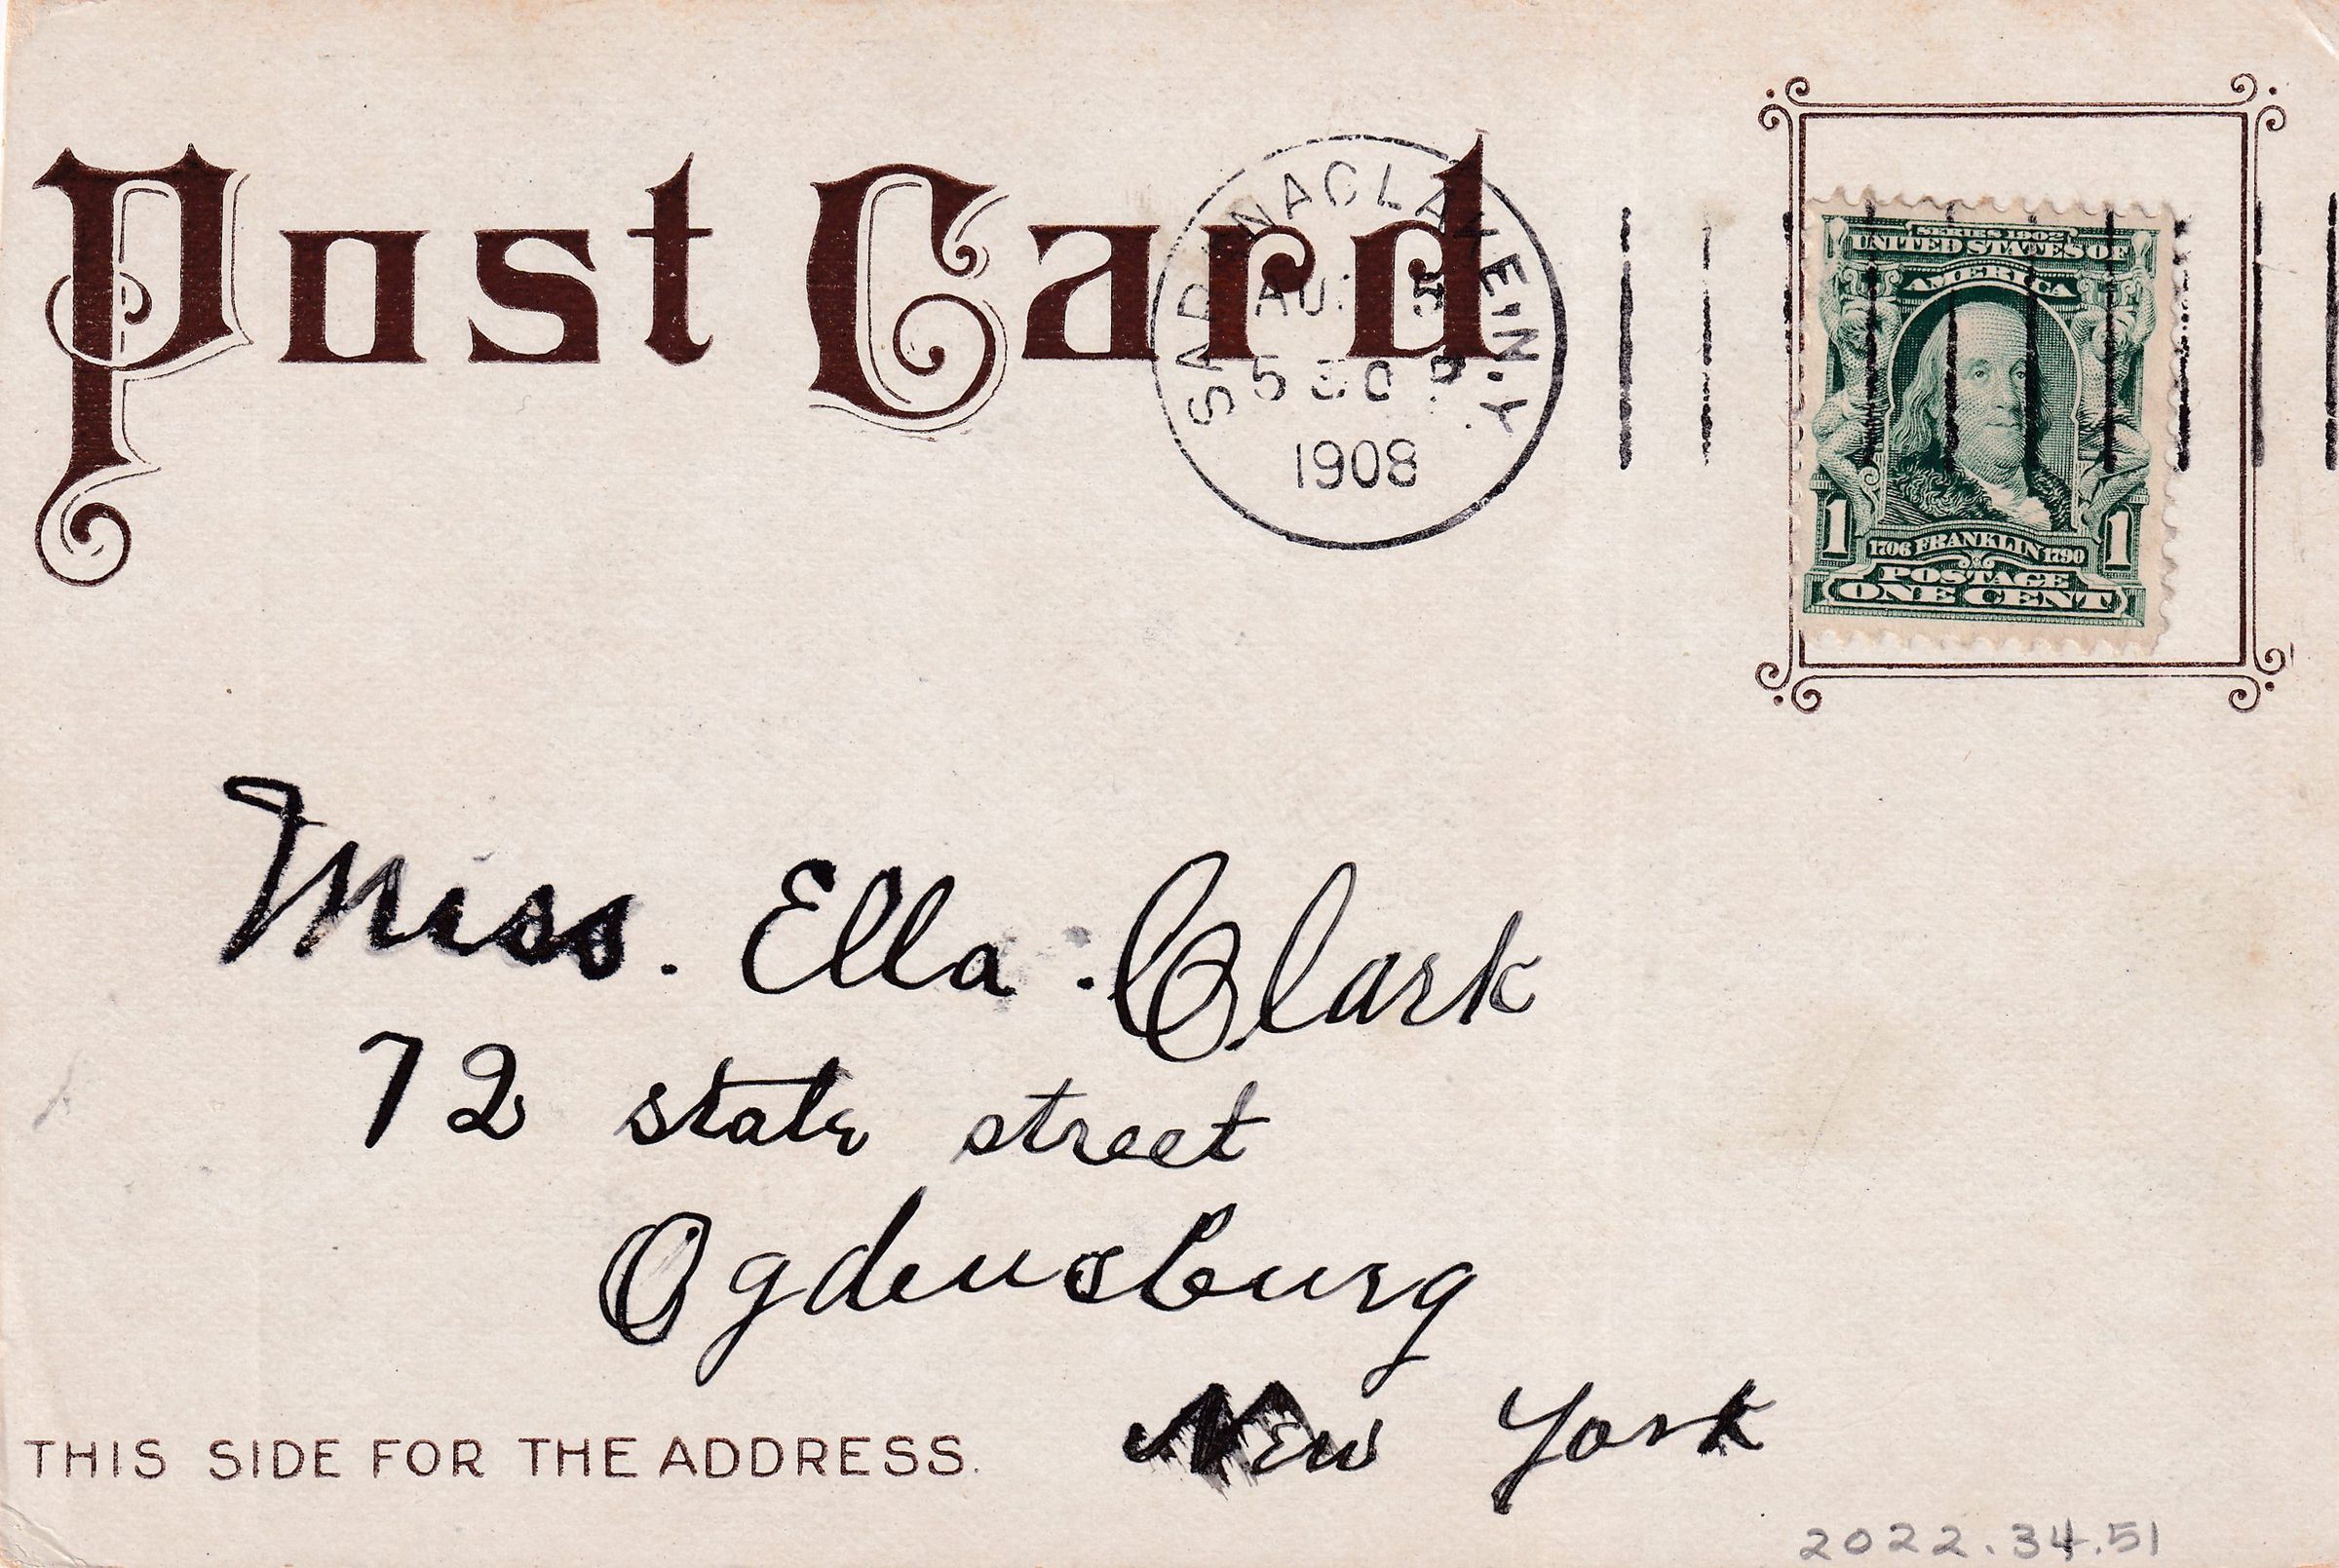 Post Card
SARANAC LAKE, N.Y.
AUG 5
5 30 P
1908
SERIES 1902
UNITED STATES OF
AMERICA
1 1706 FRANKLIN 1790 1
POSTAGE
ONE CENT
Miss. Ella. Clark
72 state street
Ogdensburg
New York
THIS SIDE FOR THE ADDRESS.
2022.34.51